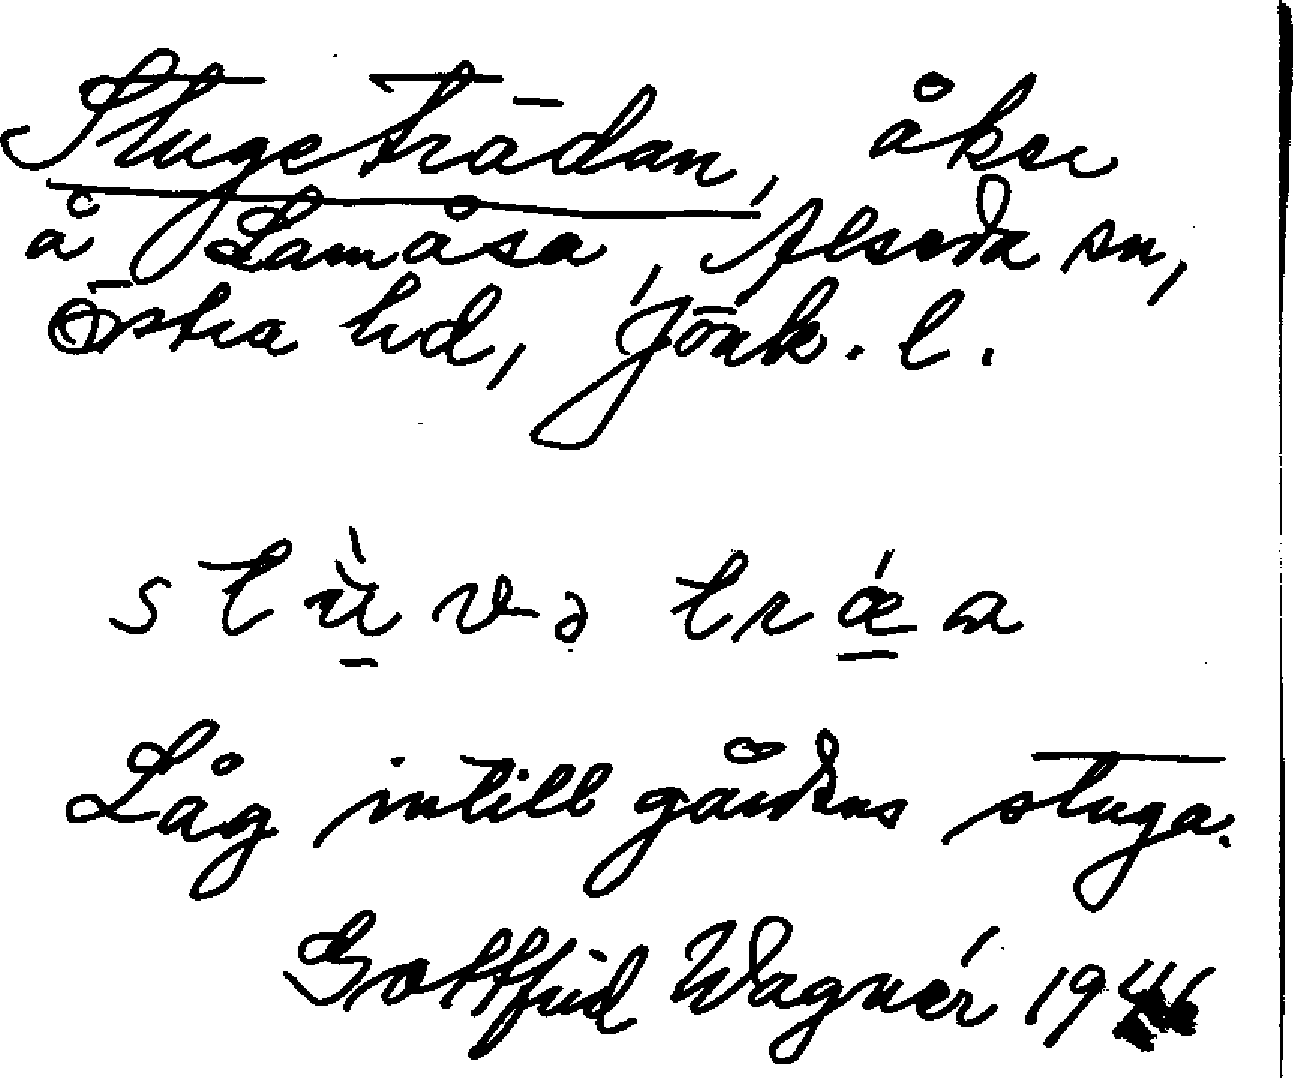 Stugeträdan, åker
å Lamåsa, Alseda sn,
Östra hd, Jönk. l.
stù̱və trǽ̱a
Låg intill gårdens stuga.
Gottfrid Wagnér 1946